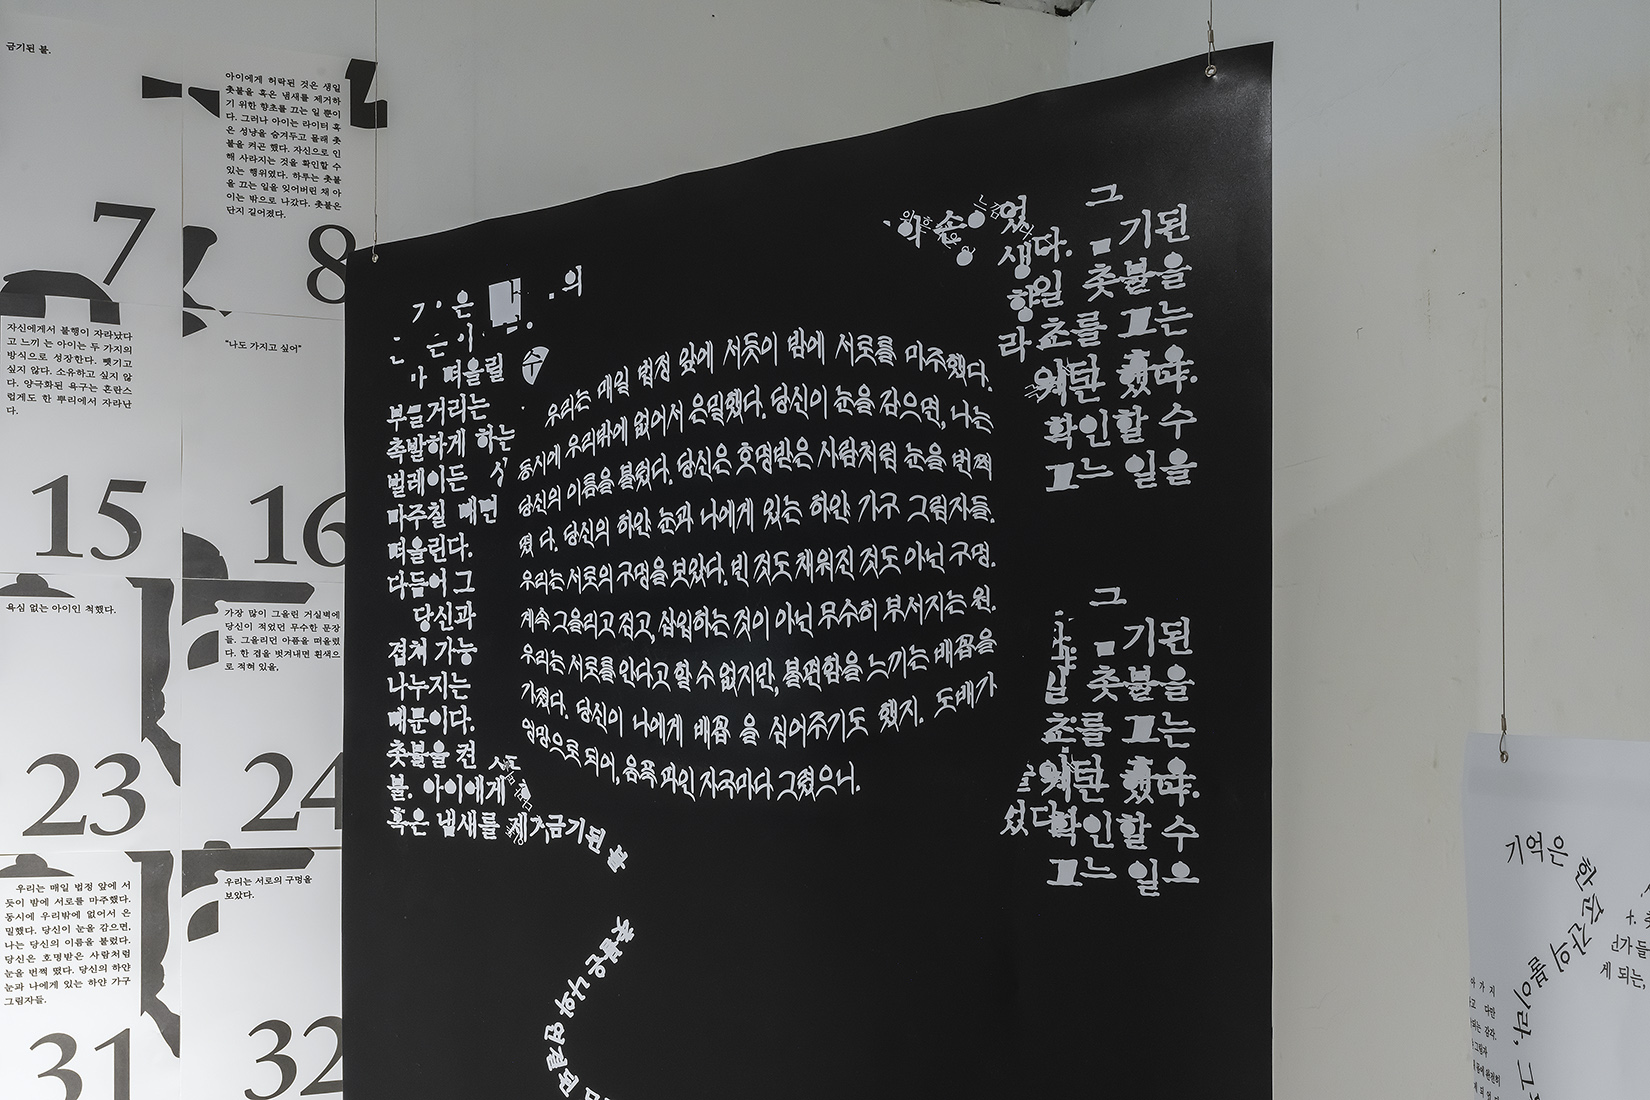 금기된 불.
아이에게 허락된 것은 생일
촛불을 혹은 냄새를 제거하
기 위한 향초를 끄는 일 뿐이
다. 그러나 아이는 라이터 혹
은 성냥을 숨겨두고 몰래 촛
불을 켜곤 했다. 자신으로 인
해 사라지는 것을 확인할 수
있는 행위였다. 하루는 촛불
을 끄는 일을 잊어버린 채 아
이는 밖으로 나갔다. 촛불은
단지 길어졌다.
7
8
자신에게서 불행이 자라났다
고 느끼 는 아이는 두 가지의
방식으로 성장한다. 뺏기고
싶지 않다. 소유하고 싶지 않
다. 양극화된 욕구는 혼란스
럽게도 한 뿌리에서 자라난
다.
"나도 가지고 싶어"
15
16
욕심 없는 아이인 척했다.
가장 많이 그을린 거실벽에
당신이 적었던 무수한 문장
들. 그을리던 아픔을 떠올렸
다. 한 겹을 벗겨내면 흰색으
로 적혀 있을,
23
24
우리는 매일 법정 앞에 서
듯이 밤에 서로를 마주했다.
동시에 우리밖에 없어서 은
밀했다. 당신이 눈을 감으면,
나는 당신의 이름을 불렀다.
당신은 호명받은 사람처럼
눈을 번쩍 떴다. 당신의 하얀
눈과 나에게 있는 하얀 가구
그림자들.
우리는 서로의 구멍을
보았다.
31
32
은
의
떠올릴 수
부글거리는
촉발하게 하는
벌레이든
마주칠 때면
떠올린다.
다듬어 그
당신과
겹쳐 가능
나누지는
때문이다.
촛불을 켠
불. 아이에게
혹은 냄새를 제거 금기된 불
촛불은 나와 연결된
우리는 매일 법정 앞에 서듯이 밤에 서로를 마주했다.
동시에 우리밖에 없어서 은밀했다. 당신이 눈을 감으면, 나는
당신의 이름을 불렀다. 당신은 호명받은 사람처럼 눈을 번쩍
떴 다. 당신의 하얀 눈과 나에게 있는 하얀 가구 그림자들.
우리는 서로의 구멍을 보았다. 빈 것도 채워진 것도 아닌 구멍.
계속 그을리고 접고, 삽입하는 것이 아닌 무수히 부서지는 원.
우리는 서로를 안다고 할 수 없지만, 불편함을 느끼는 배꼽을
가졌다. 당신이 나에게 배꼽 을 심어주기도 했지. 도배가
엉망으로 되어, 움푹 파인 자국마다 그렸으니.
그
기된
생
다.
일 촛불을
향
초를 그는
라
켜탄 했다.
확인할 수
그느 일을
그
기된
촛불을
초를 그는
켜탄 했다.
섰다
확인할 수
그느 일으
기억은 한 순간의 불이라, 그
게 되는,